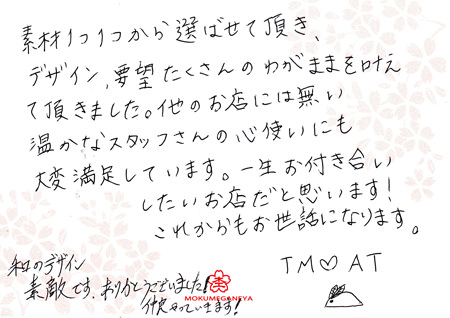 素材1つ1つから選ばせて頂き、
デザイン、要望たくさんのわがままを叶え
て頂きました。他のお店には無い
温かなスタッフさんの心使いにも
大変満足しています。一生お付き合い
したいお店だと思います！
これからもお世話になります。
和のデザイン
素敵です。ありがとうございました！
仲良くやっていきます！
TM♡AT
MOKUMEGANEYA